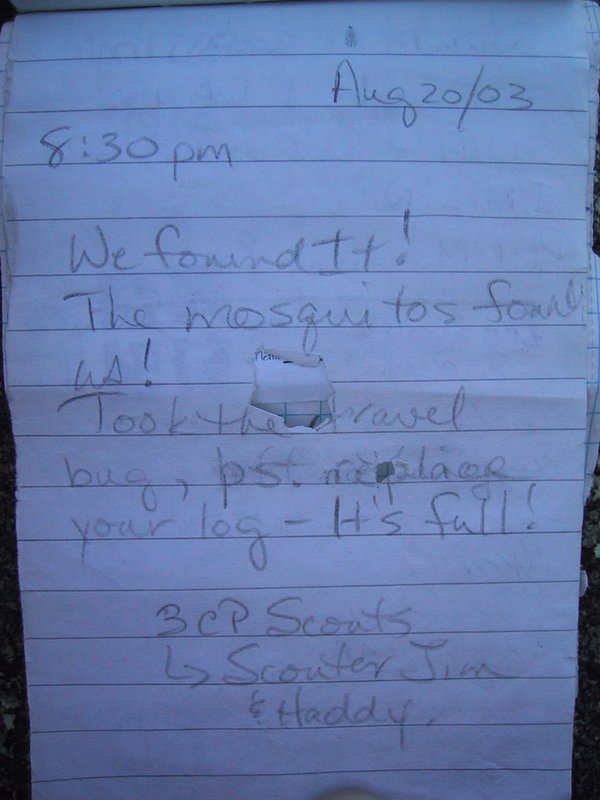 Aug 20/03
8:30 pm
We found It!
The mosquitos found
us!
Took the travel
bug, ps. replace
your log - It's full!
3 CP Scouts
↳ Scouter Jim
& Haddy.